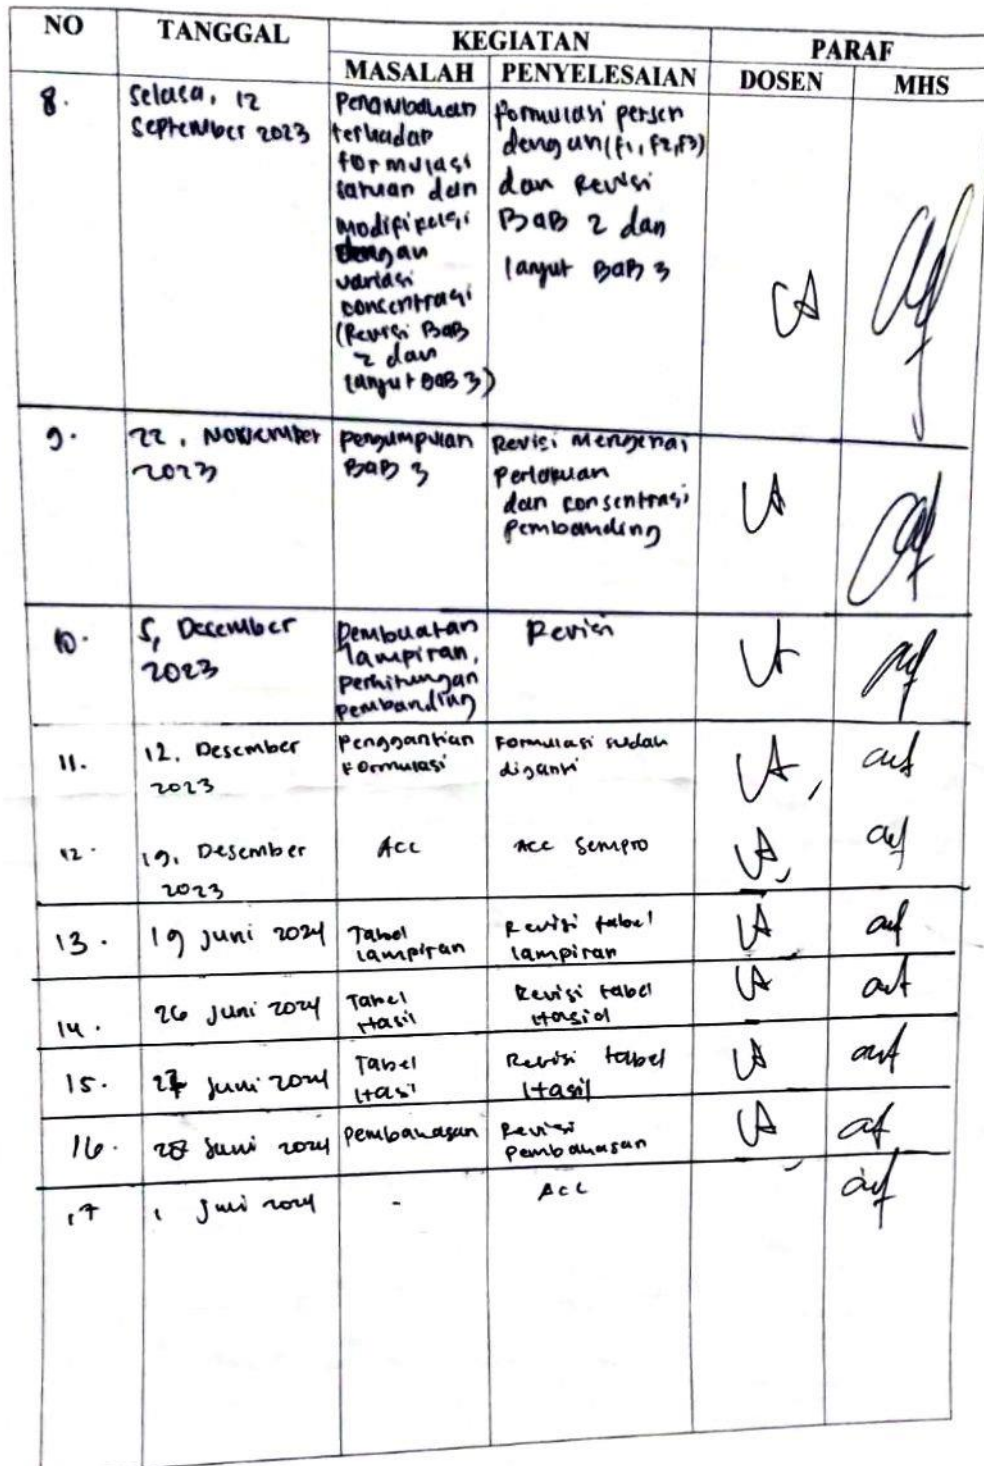 NO TANGGAL KEGIATAN PARAF
MASALAH PENYELESAIAN DOSEN MHS
8. Selasa, 12
September 2023
Penambahan
terhadap
formulasi
satuan dan
modifikasi
dengan
variasi
consentrasi
(Revisi BAB
2 dan
lanjut BAB 3)
formulasi persen
dengan (f1, f2, f3)
dan Revisi
BAB 2 dan
lanjut BAB 3
9. 22, November
2023
pengumpulan
BAB 3
Revisi mengenai
perlakuan
dan konsentrasi
pembanding
10. 5, December
2023
Pembuatan
lampiran,
perhitungan
pembanding
Revisi
11. 12, Desember
2023
Penggantian
Formulasi
Formulasi sudah
diganti
12. 19, Desember
2023
Acc
Acc Sempro
13. 19 Juni 2024
Tabel
lampiran
Revisi tabel
lampiran
14. 26 Juni 2024
Tabel
Hasil
Revisi tabel
15. 27 Juni 2024
Tabel
Hasil
Revisi tabel
Hasil
16. 28 Juni 2024
Pembahasan
Revisi
Pembahasan
17 1 Juli 2024
-
Acc